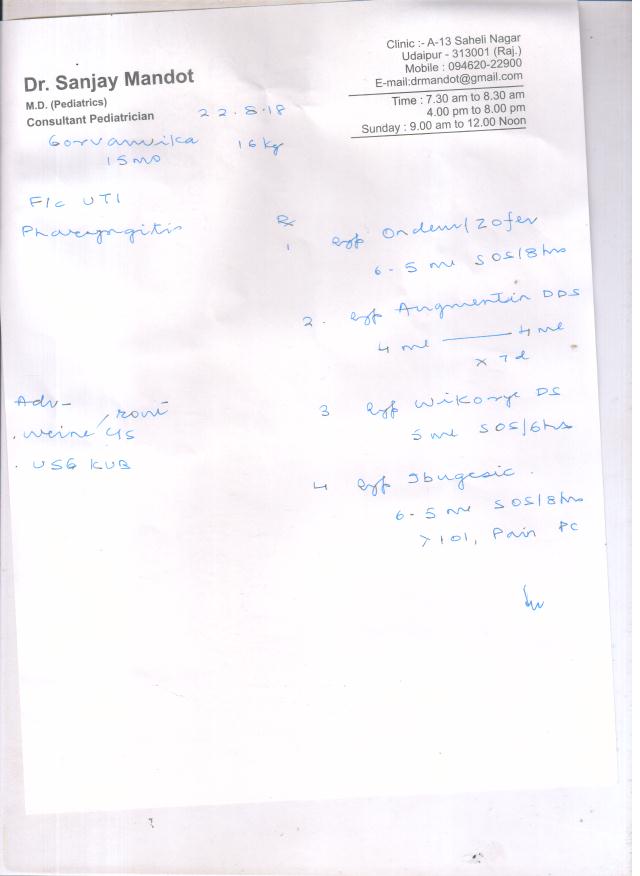 Dr. Sanjay Mandot
M.D. (Pediatrics)
Consultant Pediatrician
Clinic :- A-13 Saheli Nagar
Udaipur - 313001 (Raj.)
Mobile : 094620-22900
E-mail:drmandot@gmail.com
Time : 7.30 am to 8.30 am
4.00 pm to 8.00 pm
Sunday : 9.00 am to 12.00 Noon
22.8.18
16 kg
F/c UTI
Pharyngitis
Rx
1 syp Ondem/Zofer
6-5 ml SOS/8hrs
2. syp Augmentin DDS
4 ml — 4 ml
x 7d
Adv-
urine
USG KUB
3 syp Wikoryl DS
5 ml SOS/6hrs
4 syp Ibugesic.
6-5 ml SOS/8hrs
>101, Pain PC